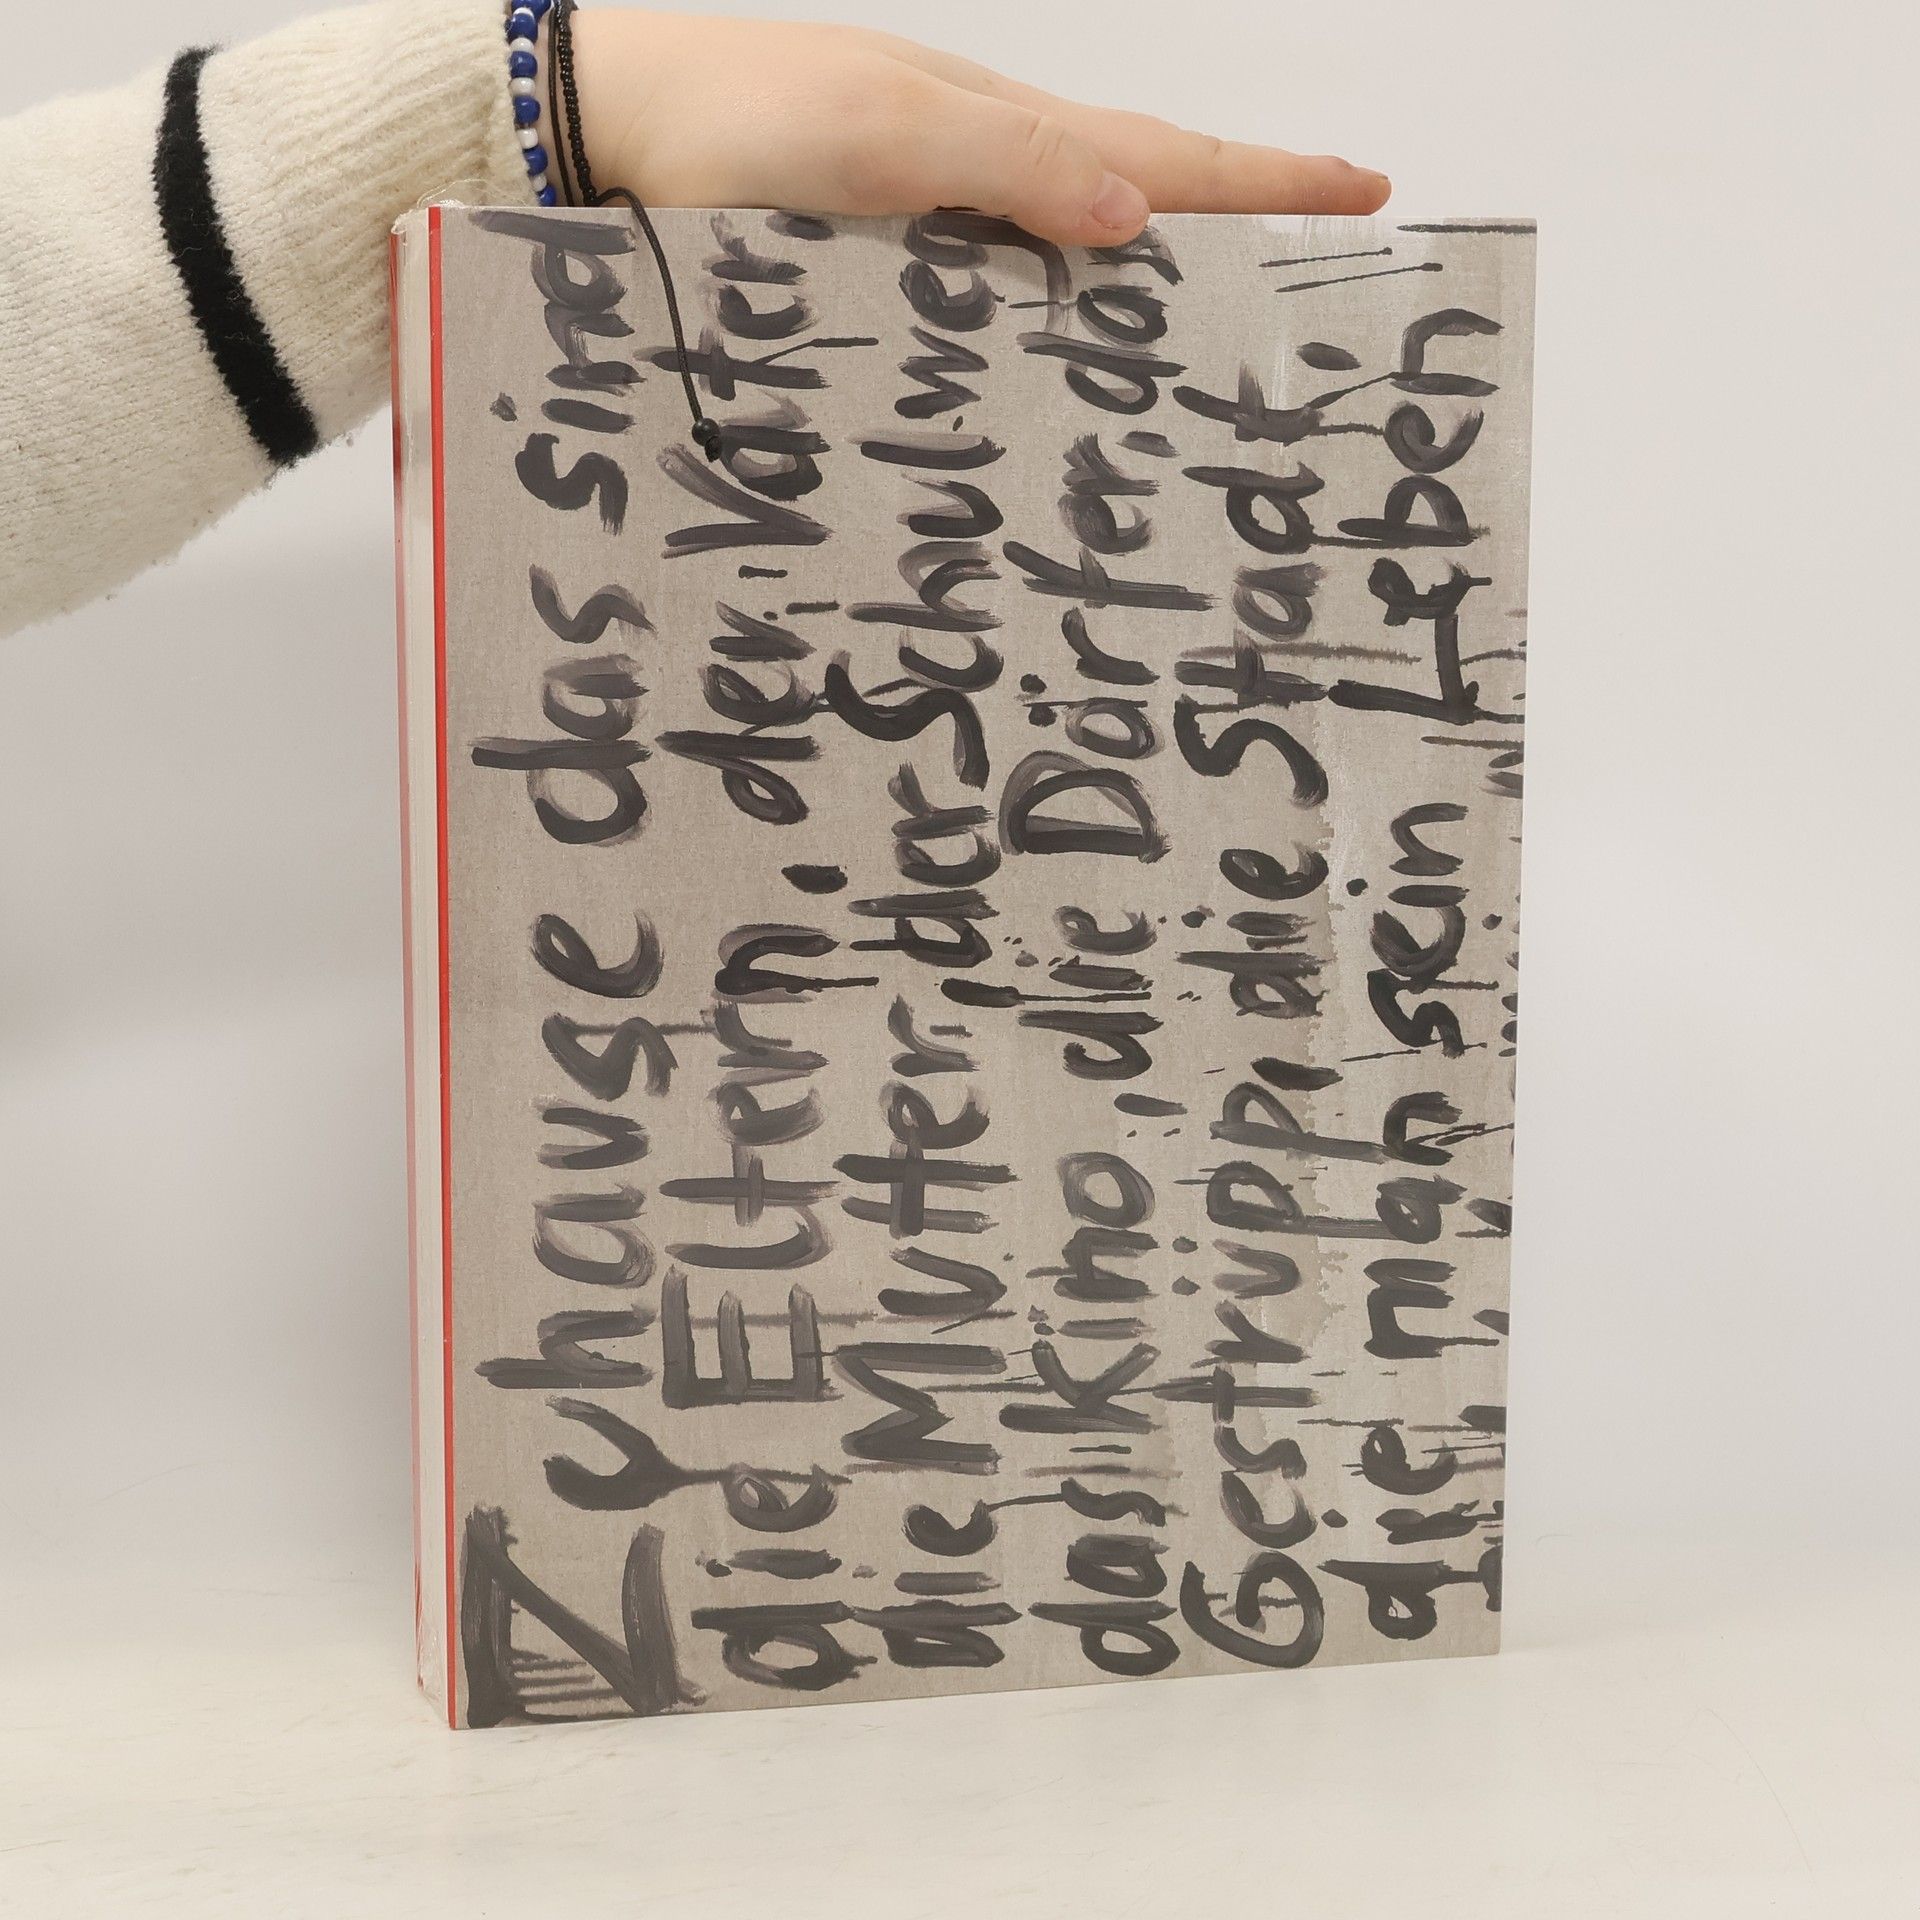 Zuhause das sind
die Eltern, der Vater,
die Mutter, der Schulweg
das Kino, die Dörfer, das
Gestrüpp, die Stadt,
die man sein Leben